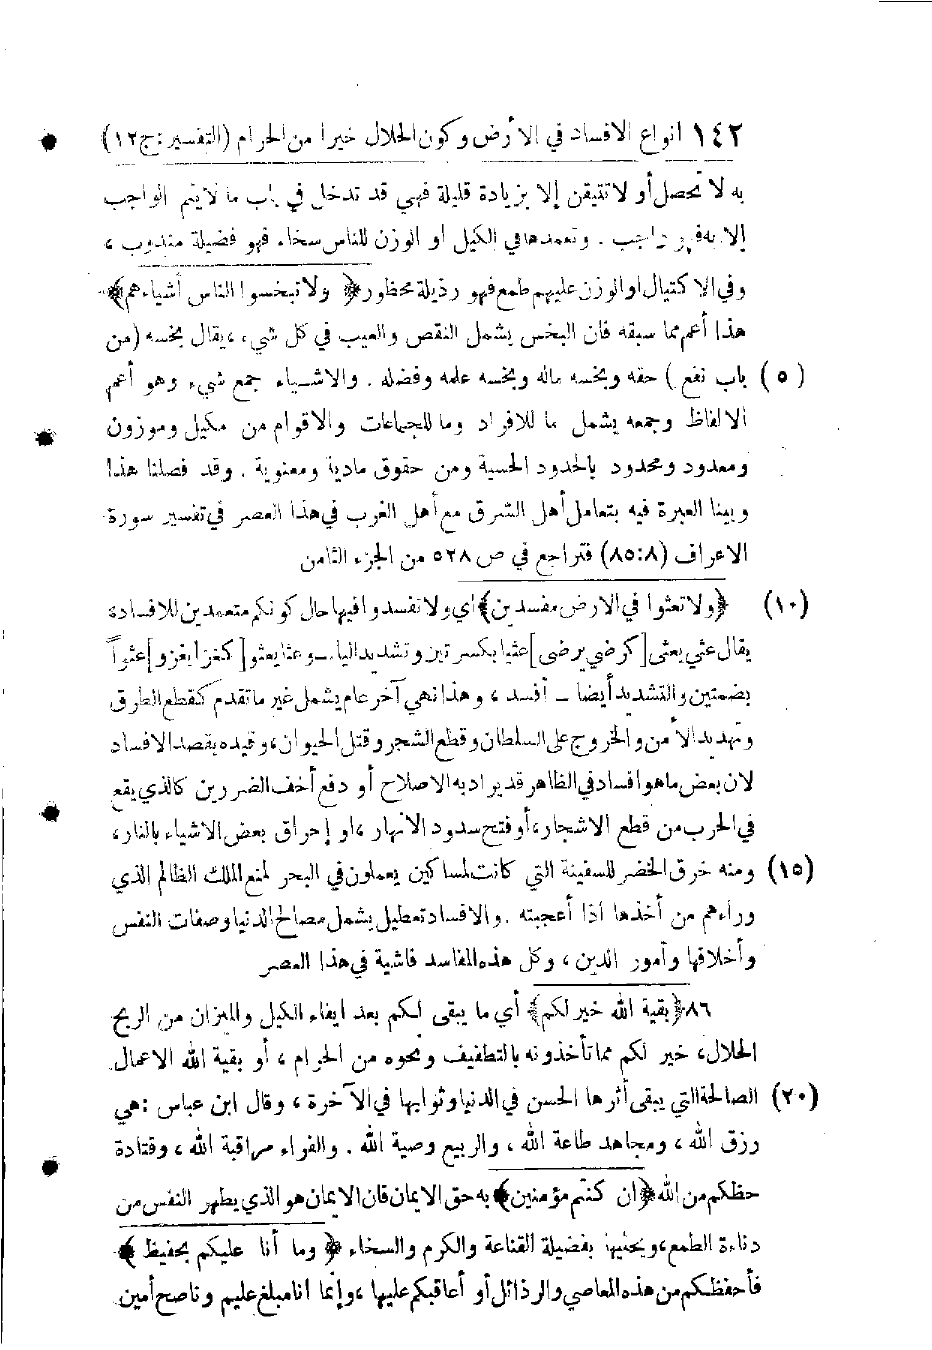 ١٤٢ انواع الافساد في الأرض وكون الحلال خيرا من الحرام (التفسير: ج ١٢)
به لا تحصل أو لا تتيقن إلا بزيادة قليلة فهي قد تدخل في باب ما لا يتم الواجب
إلا به فهو واجب . وتعمدها في الكيل او الوزن للناس سخاء فهو فضيلة مندوب ،
وفي الاكتيال او الوزن عليهم طمع فهو رذيلة محظور ﴿ ولا تبخسوا الناس أشياءهم ﴾
هذا أعم مما سبقه فان البخس يشمل النقص والعيب في كل شيء ، يقال بخسه (من
(٥) باب نفع ) حقه وبخسه ماله وبخسه علمه وفضله . والاشياء جمع شيء وهو أعم
الالفاظ وجمعه يشمل ما للافراد وما للجماعات والاقوام من مكيل وموزون
ومعدود ومحدود بالحدود الحسية ومن حقوق مادية ومعنوية . وقد فصلنا هذا
وبينا العبرة فيه بتعامل أهل الشرق مع أهل الغرب في هذا العصر في تفسير سورة
الاعراف (٨٥:٨) فتراجع في ص ٥٢٨ من الجزء الثامن
(١٠) ﴿ ولا تعثوا في الارض مفسدين ﴾ اي ولا تفسدوا فيها حال كونكم متعمدين للافساد
يقال عثي يعثى [كرضي يرضى] عثيا بكسرتين وتشديد الياء ــ وعثا يعثو [كغزا يغزو] عثواً
بضمتين والتشديد أيضا ــ أفسد ، وهذا نهي آخر عام يشمل غير ما تقدم كقطع الطرق
وتهديد الأمن والخروج على السلطان وقطع الشجر وقتل الحيوان ، وقيده بقصد الافساد
لان بعض ما هو افساد في الظاهر قد يراد به الاصلاح أو دفع أخف الضررين كالذي يقع
في الحرب من قطع الاشجار ، أو فتح سدود الانهار ، او إحراق بعض الاشياء بالنار ،
(١٥) ومنه خرق الخضر للسفينة التي كانت لمساكين يعملون في البحر لمنع الملك الظالم الذي
وراءهم من أخذها اذا أعجبته . والافساد تعطيل يشمل مصالح الدنيا وصفات النفس
وأخلاقها وأمور الدين ، وكل هذه المفاسد فاشية في هذا العصر
٨٦ ﴿ بقية الله خير لكم ﴾ أي ما يبقى لكم بعد ايفاء الكيل والميزان من الربح
الحلال ، خير لكم مما تأخذونه بالتطفيف ونحوه من الحرام ، أو بقية الله الاعمال
(٢٠) الصالحة التي يبقى أثرها الحسن في الدنيا وثوابها في الآخرة ، وقال ابن عباس : هي
رزق الله ، ومجاهد طاعة الله ، والربيع وصية الله . والفراء مراقبة الله ، وقتادة
حظكم من الله ﴿ ان كنتم مؤمنين ﴾ به حق الايمان فان الايمان هو الذي يطهر النفس من
دناءة الطمع ، ويحليها بفضيلة القناعة والكرم والسخاء ﴿ وما أنا عليكم بحفيظ ﴾
فأحفظكم من هذه المعاصي والرذائل أو أعاقبكم عليها ، وإنما انا مبلغ عليم وناصح أمين